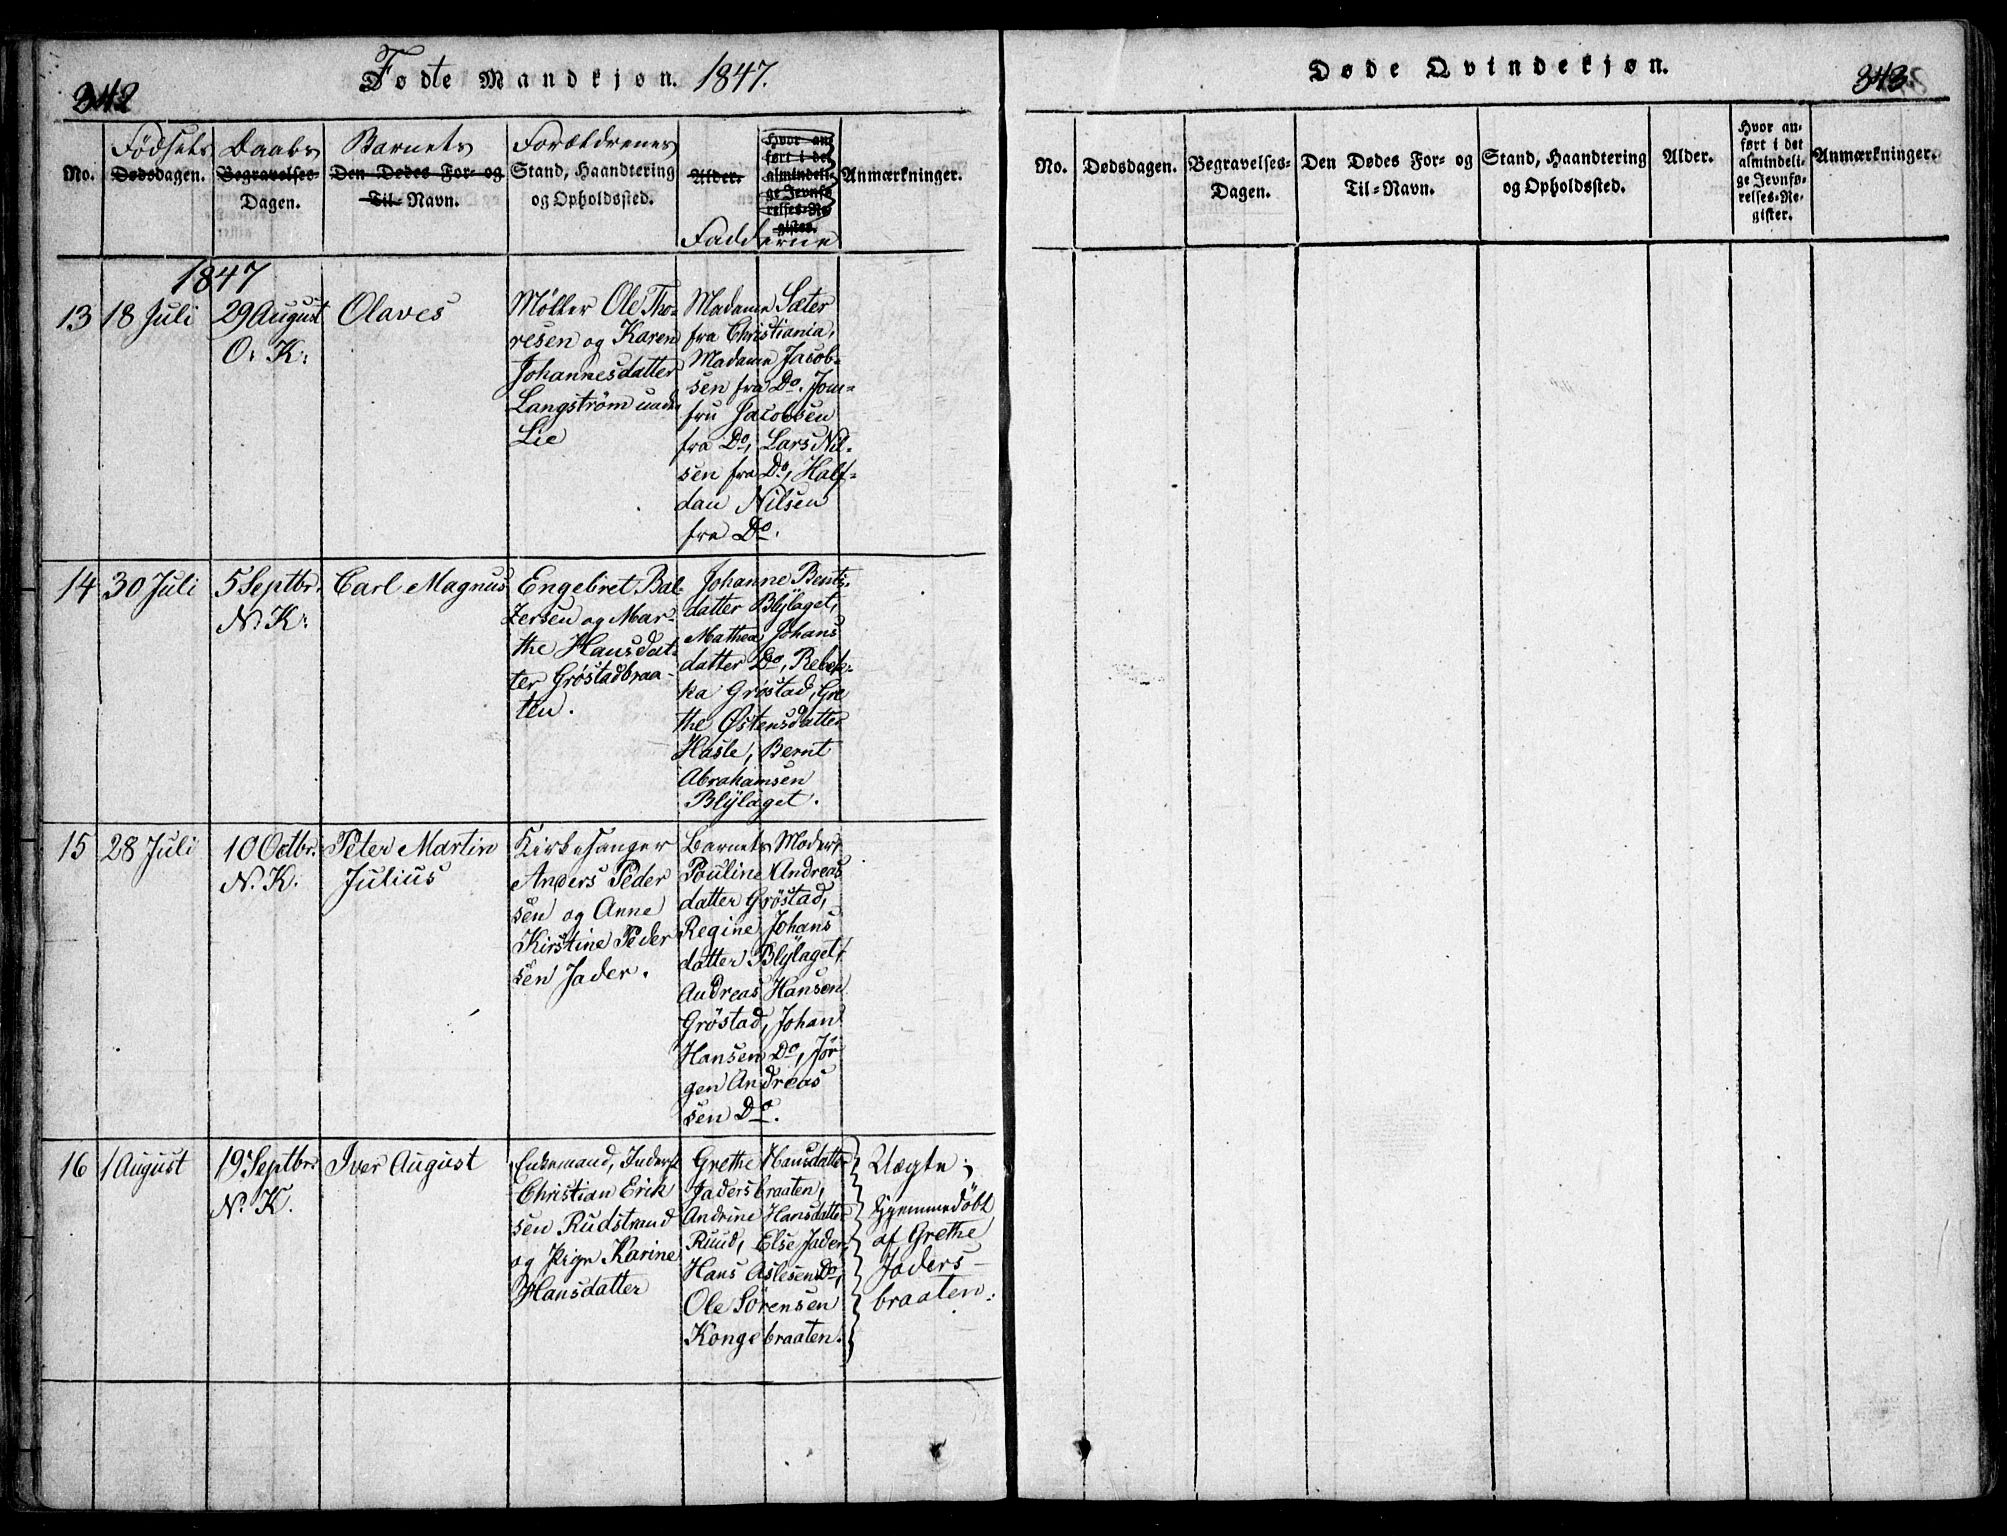 342
Fødte Mandkjøn. 1847.
No.
Fødsels
Dødsdagen.
Daabs
Begravelses-
Dagen.
Barnets
Den Dødes For- og
Til-Navn.
Forældrenes
Stand, Haandtering
og Opholdssted.
Alder.
Hvor an-
ført i det
almindeli-
ge Jevnfø-
relses-Re-
gister.
Fadderne
Anmærkninger.
1847
13
18 Juli
29 August
O. K:
Olaves
Møller Ole Tho-
resen og Karen
Johannesdatter
Langstrøm
Lie
Madame Sæter
fra Christiania,
Madame Jacob-
sen fra Do. Jom-
fru Jacobsen
fra Do, Lars Nil-
sen fra Do, Half-
dan Nilsen
fra Do.
14
30 Juli
5 Septbr.
N. K:
Carl Magnus
Engebret Bal-
zersen og Mar-
the Hansdat-
ter Grøstadbraa-
ten.
Johanne Bents-
datter Blylaget,
Mathea Johans
datter Do, Rebek-
ka Grøstad, Gre
the Østensdatter
Hasle, Bernt
Abrahamsen
Blylaget.
15
28 Juli
10 Octbr.
N. K.
Peter Martin
Julius
Kirkesanger
Anders Peder
sen og Anne
Kirstine Peder
sen Jader.
Barnets Moder,
Pouline Andreas
datter Grøstad,
Regine Johans
datter Blylaget,
Andreas Hansen
Grøstad, Johan
Hansen Do, Jør
gen Andreas
sen Do.
16
1 August
19 Septbr
N. K.
Iver August
Enkemand, Inderst
Christian Erik
sen Rudstrand
og Pige Karine
Hansdatter
Grethe Hansdatter
Jadersbraaten,
Andrine Hansdatter
Ruud, Else Jader,
Hans Aslesen Do,
Ole Sørensen
Kongebraaten.
Uægte;
hjemmedøbt
af Grethe
Jaders-
braaten.
Døde Qvindekjøn.
343
No.
Dødsdagen.
Begravelses-
Dagen.
Den Dødes For- og
Til-Navn.
Stand, Haandtering
og Opholdssted.
Alder.
Hvor an-
ført i det
almindeli-
ge Jevnfø-
relses-Re-
gister.
Anmærkninger.